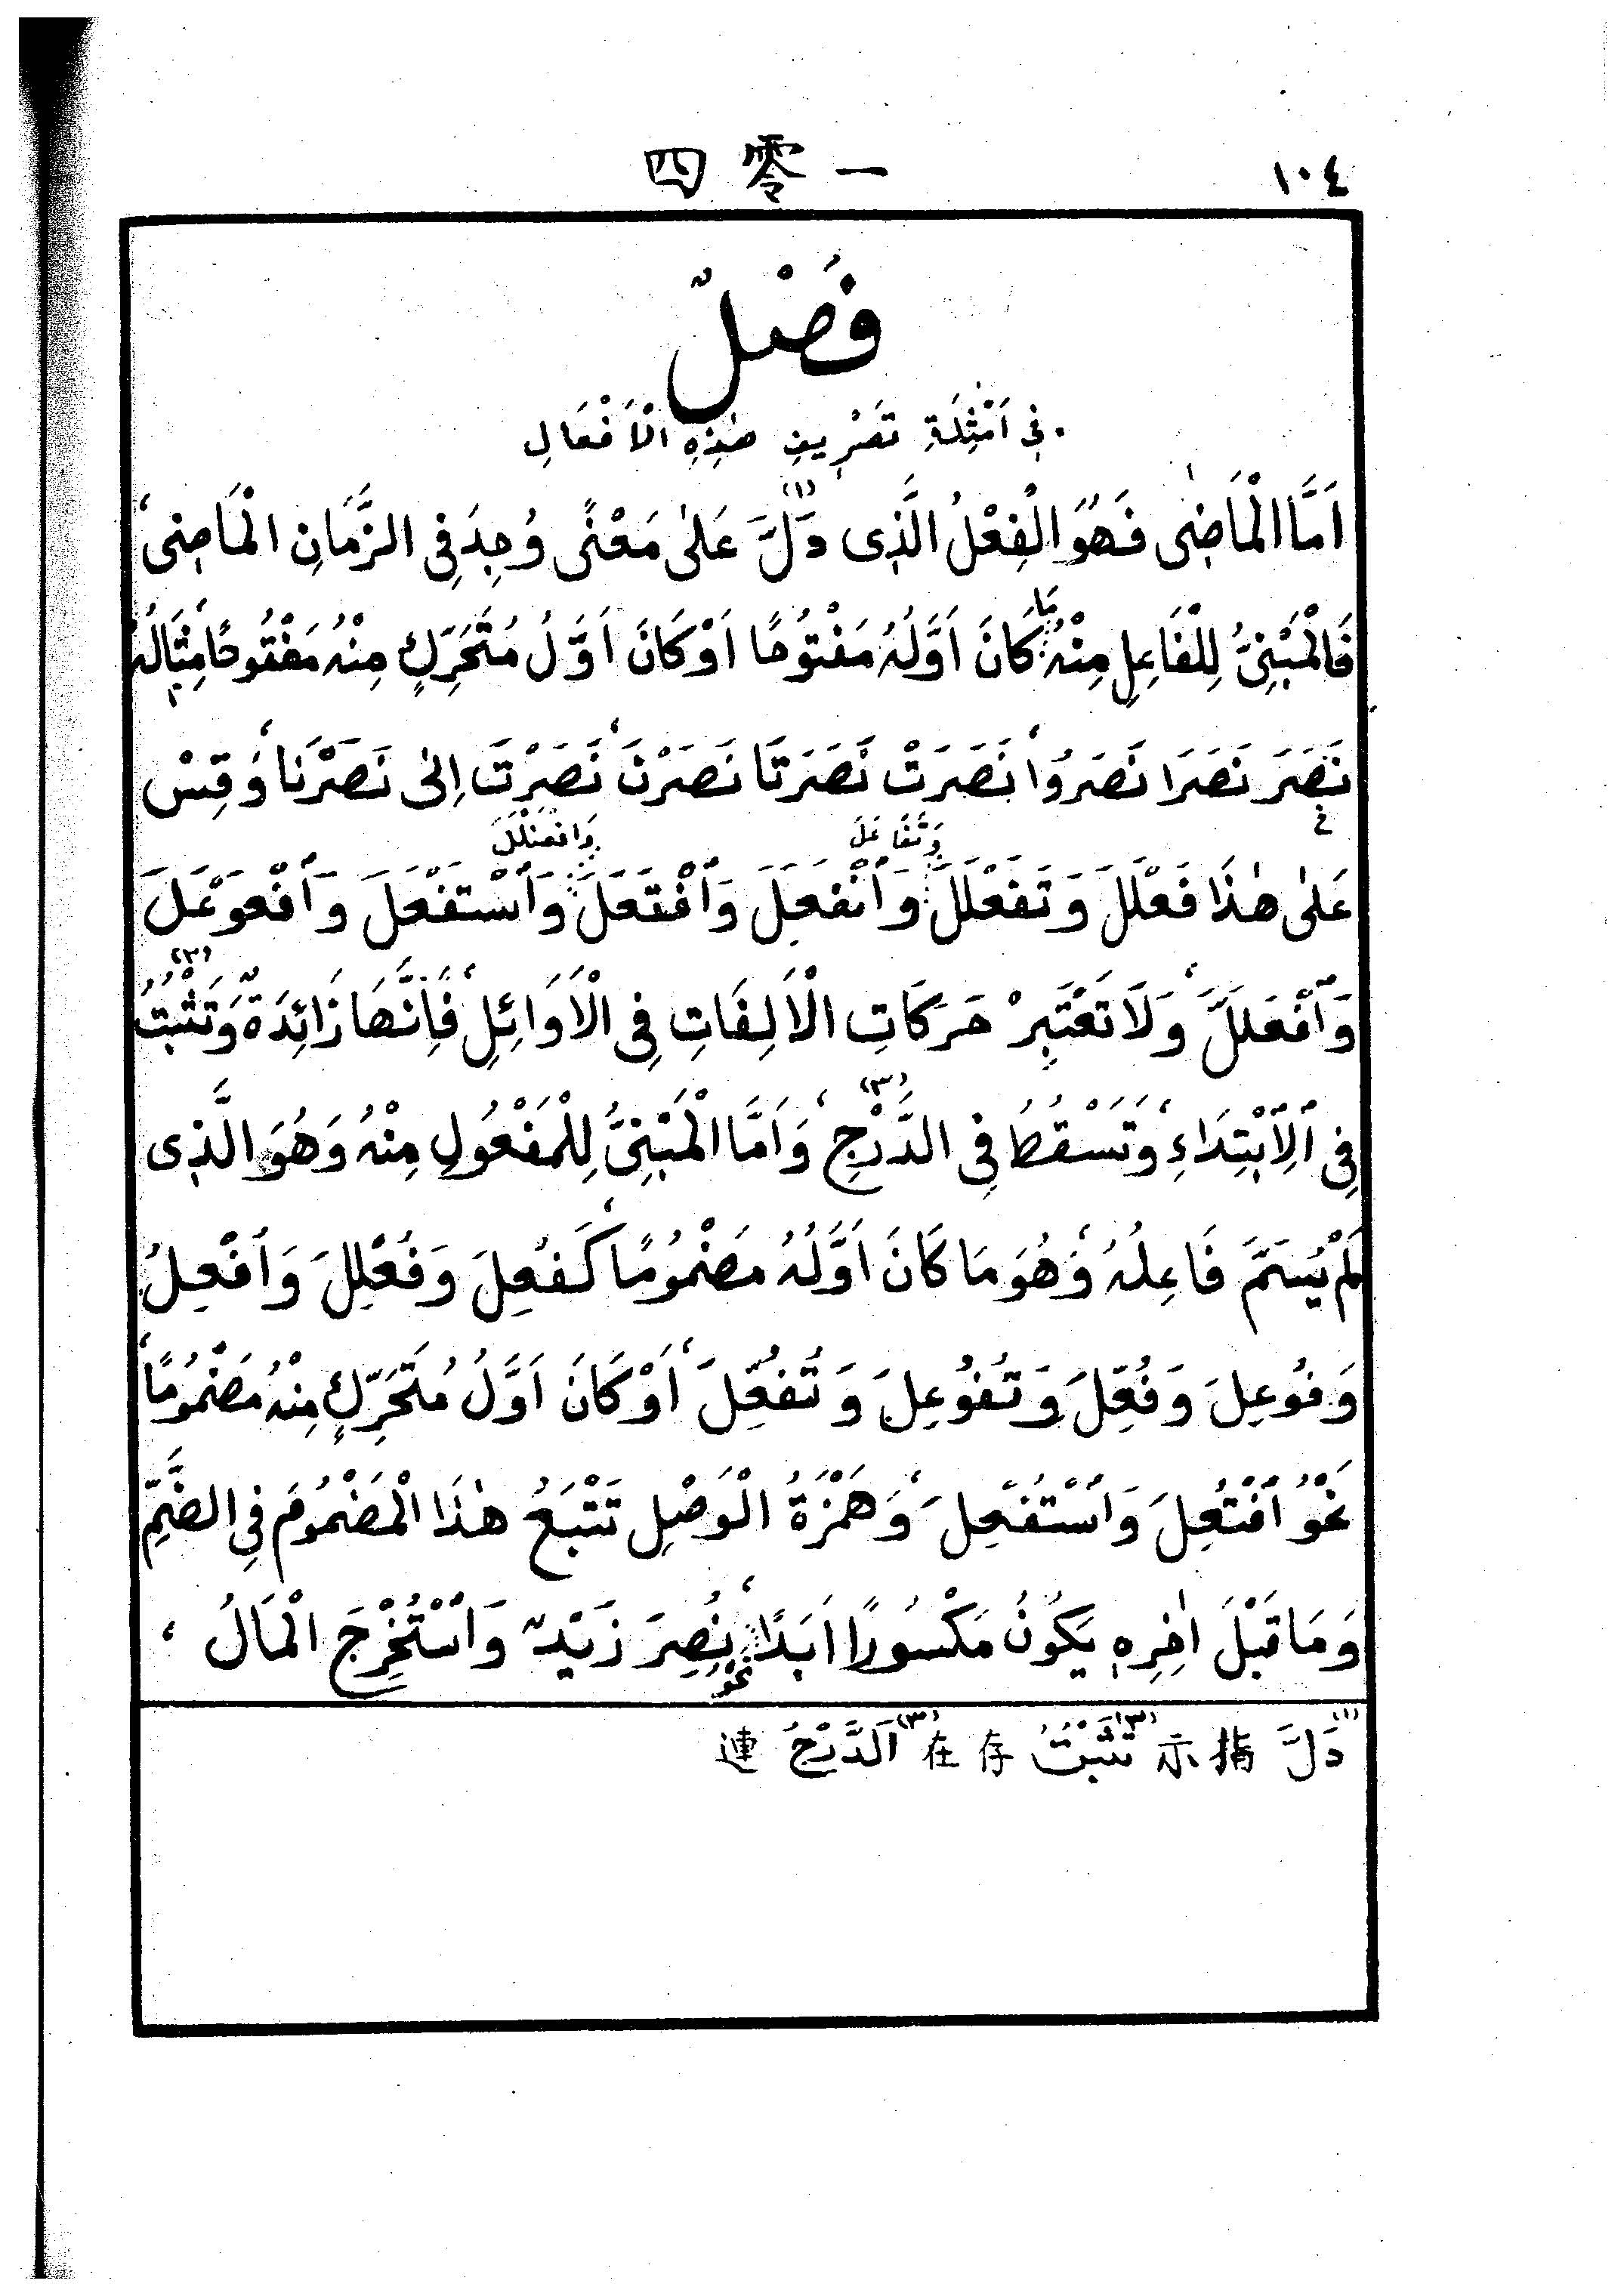 ١٠٤ 一零四
فَصْلٌ
فِى اَمْثِلَةِ تَصْرِيفِ هٰذِهِ الْاَفْعَالِ
اَمَّا الْمَاضِى فَهُوَ الْفِعْلُ الَّذِى دَلَّ (١) عَلٰى مَعْنًى وُجِدَ فِى الزَّمَانِ الْمَاضِى،
فَالْمَبْنِىُّ لِلْفَاعِلِ مِنْهُ مَا كَانَ اَوَّلُهُ مَفْتُوحًا اَوْ كَانَ اَوَّلُ مُتَحَرِّكٍ مِنْهُ مَفْتُوحًا، مِثَالُهُ
نَصَرَ نَصَرَا نَصَرُوا، نَصَرَتْ نَصَرَتَا نَصَرْنَ، نَصَرْتَ اِلٰى نَصَرْنَا، وَقِسْ
عَلٰى هٰذَا فَعْلَلَ وَتَفَعْلَلَ وَتَفَاعَلَ وَٱنْفَعَلَ وَٱفْتَعَلَ وَافْعَنْلَلَ وَٱسْتَفْعَلَ وَٱفْعَوْعَلَ
وَٱفْعَلَلَّ، وَلَا تَعْتَبِرْ حَرَكَاتِ الْاَلِفَاتِ فِى الْاَوَائِلِ، فَاِنَّهَا زَائِدَةٌ وَتَثْبُتُ (٢)
فِى ٱلِٱبْتِدَاءِ، وَتَسْقُطُ فِى الدَّرْجِ (٣)، وَاَمَّا الْمَبْنِىُّ لِلْمَفْعُولِ مِنْهُ وَهُوَ الَّذِى
لَمْ يُسَمَّ فَاعِلُهُ، وَهُوَ مَا كَانَ اَوَّلُهُ مَضْمُومًا، كَفُعِلَ وَفُعْلِلَ وَاُفْعِلَ
وَفُوعِلَ وَفُعِّلَ وَتُفُوعِلَ وَتُفُعِّلَ، اَوْ كَانَ اَوَّلُ مُتَحَرِّكٍ مِنْهُ مَضْمُومًا،
نَحْوُ ٱفْتُعِلَ وَٱسْتُفْعِلَ، وَهَمْزَةُ الْوَصْلِ تَتْبَعُ هٰذَا الْمَضْمُومَ فِى الضَّمِّ
وَمَا قَبْلَ اٰخِرِهِ يَكُونُ مَكْسُورًا اَبَدًا، نَحْوُ نُصِرَ زَيْدٌ وَٱسْتُخْرِجَ الْمَالُ،
(١) دَلَّ 指示 (٢) تَثْبُتُ 存在 (٣) اَلدَّرْجُ 連